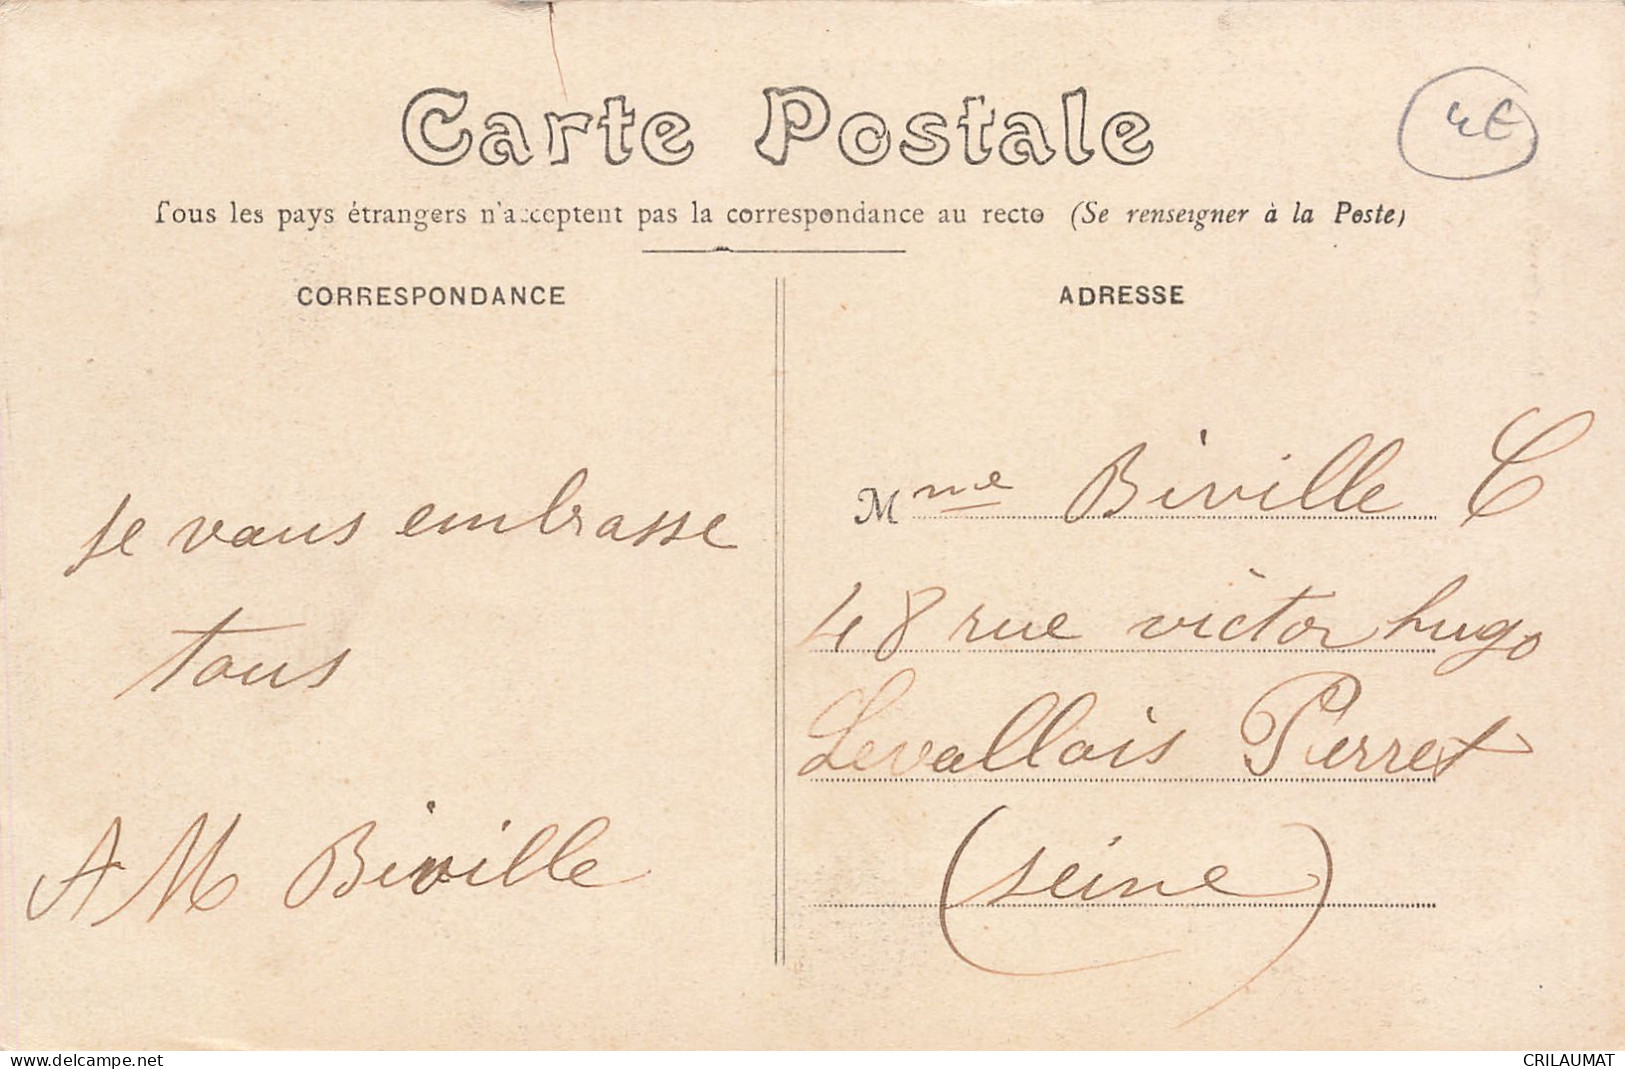 Carte Postale
4€
Tous les pays étrangers n'acceptent pas la correspondance au recto (Se renseigner à la Poste)
CORRESPONDANCE
je vous embrasse
tous
A M Biville
ADRESSE
Mme Biville C
48 rue victor hugo
Levallois Perret
(seine)
www.delcampe.net
CRILAUMAT